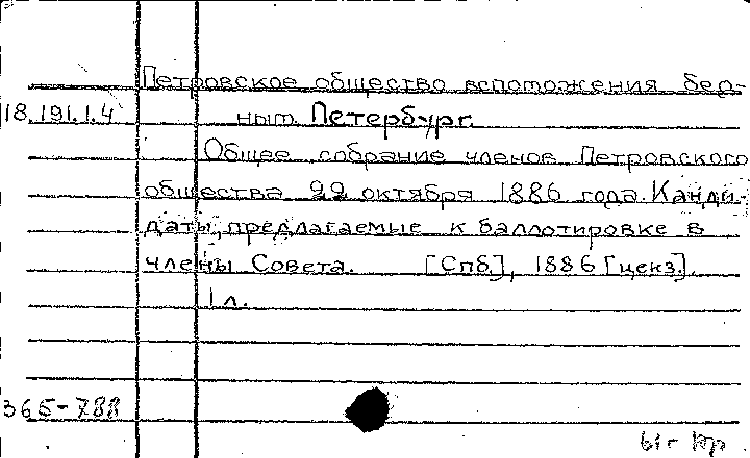 Петровское общество вспоможения бед-
18.191.1.4 ным. Петербург.
Общее собрание членов Петровского
общества 22 октября 1886 года. Канди-
даты, предлагаемые к баллотировке в
члены Совета. [Спб.], 1886 [ценз.].
1 л.
365-788
61-